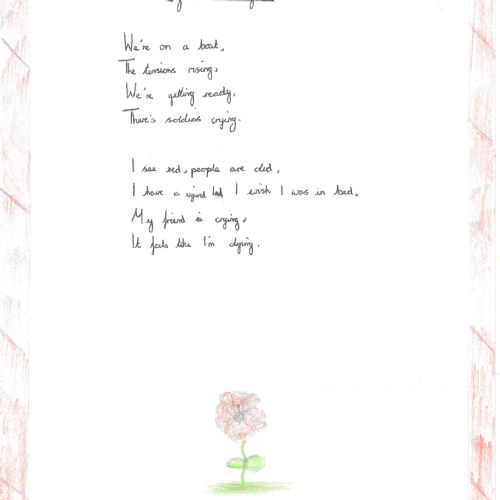 We're on a boat,
The tensions rising,
We're getting ready,
There's soldiers crying.
I see red, people are died,
I have a injured I wish I was in bed,
My friend is crying,
It feels like I'm dying.